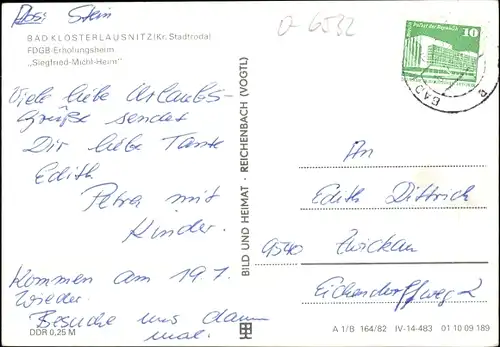 Abs: Stein
BAD KLOSTERLAUSNITZ (Kr. Stadtroda)
FDGB-Erholungsheim
„Siegfried-Michl-Heim“
Viele liebe Urlaubs-
grüße sendet
Dir liebe Tante
Edith
Petra mit
Kinder.
Kommen am 19.1.
wieder.
Besuche uns dann
mal.
DDR 0,25 M
BILD UND HEIMAT · REICHENBACH (VOGTL)
6532
Palast der Republik
10
BAD
An
Edith Dittrich
9540 Zwickau
Eichendorffweg 2
A 1/B 164/82 IV-14-483 01 10 09 189